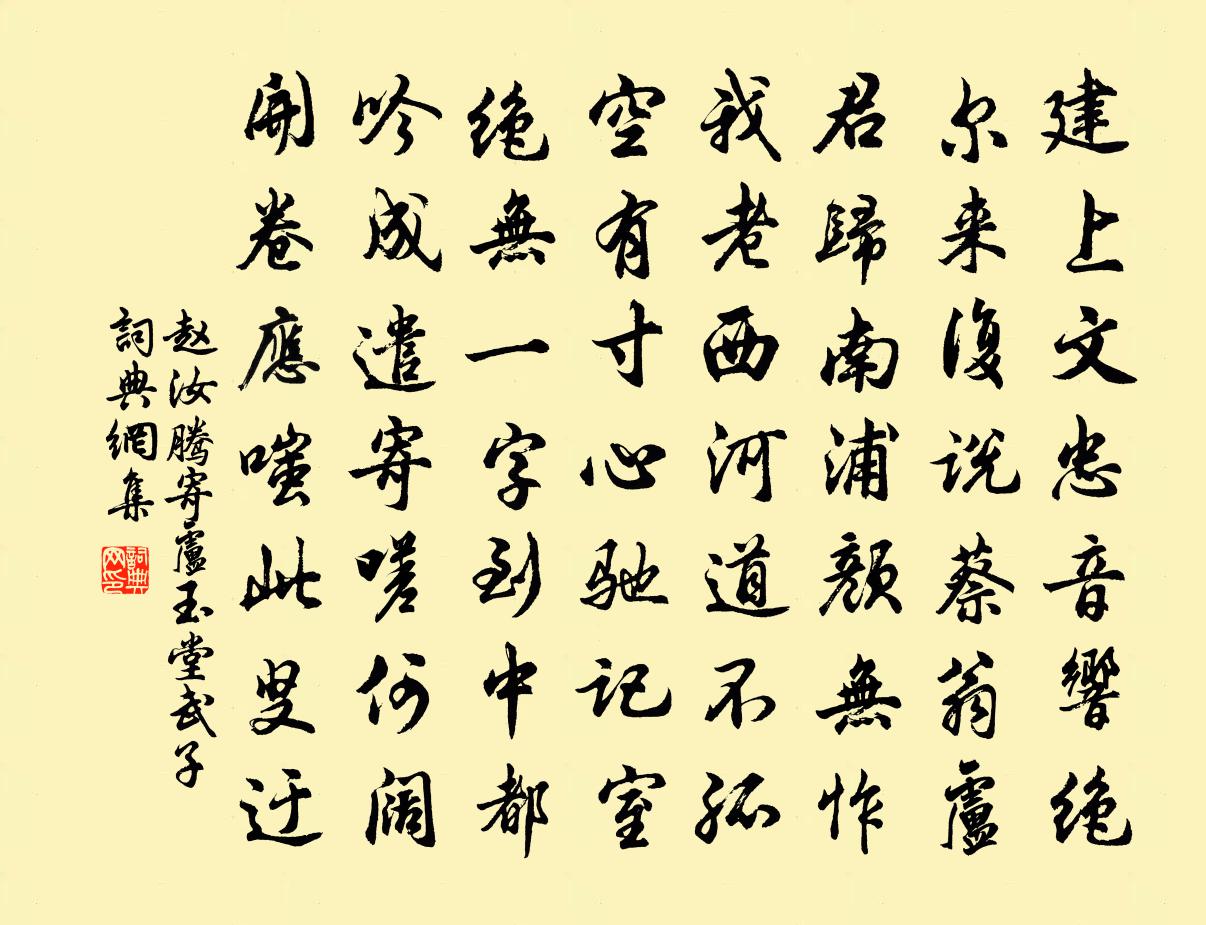 建上文忠音響絶
尔来復说蔡翁盧
君歸南浦顏無怍
我老西河道不孤
空有寸心馳记室
絶無一字到中都
吟成遣寄嗟何阔
開卷應嗤此叟迂
赵汝腾寄盧玉堂武子
詞典網集
詞典网印